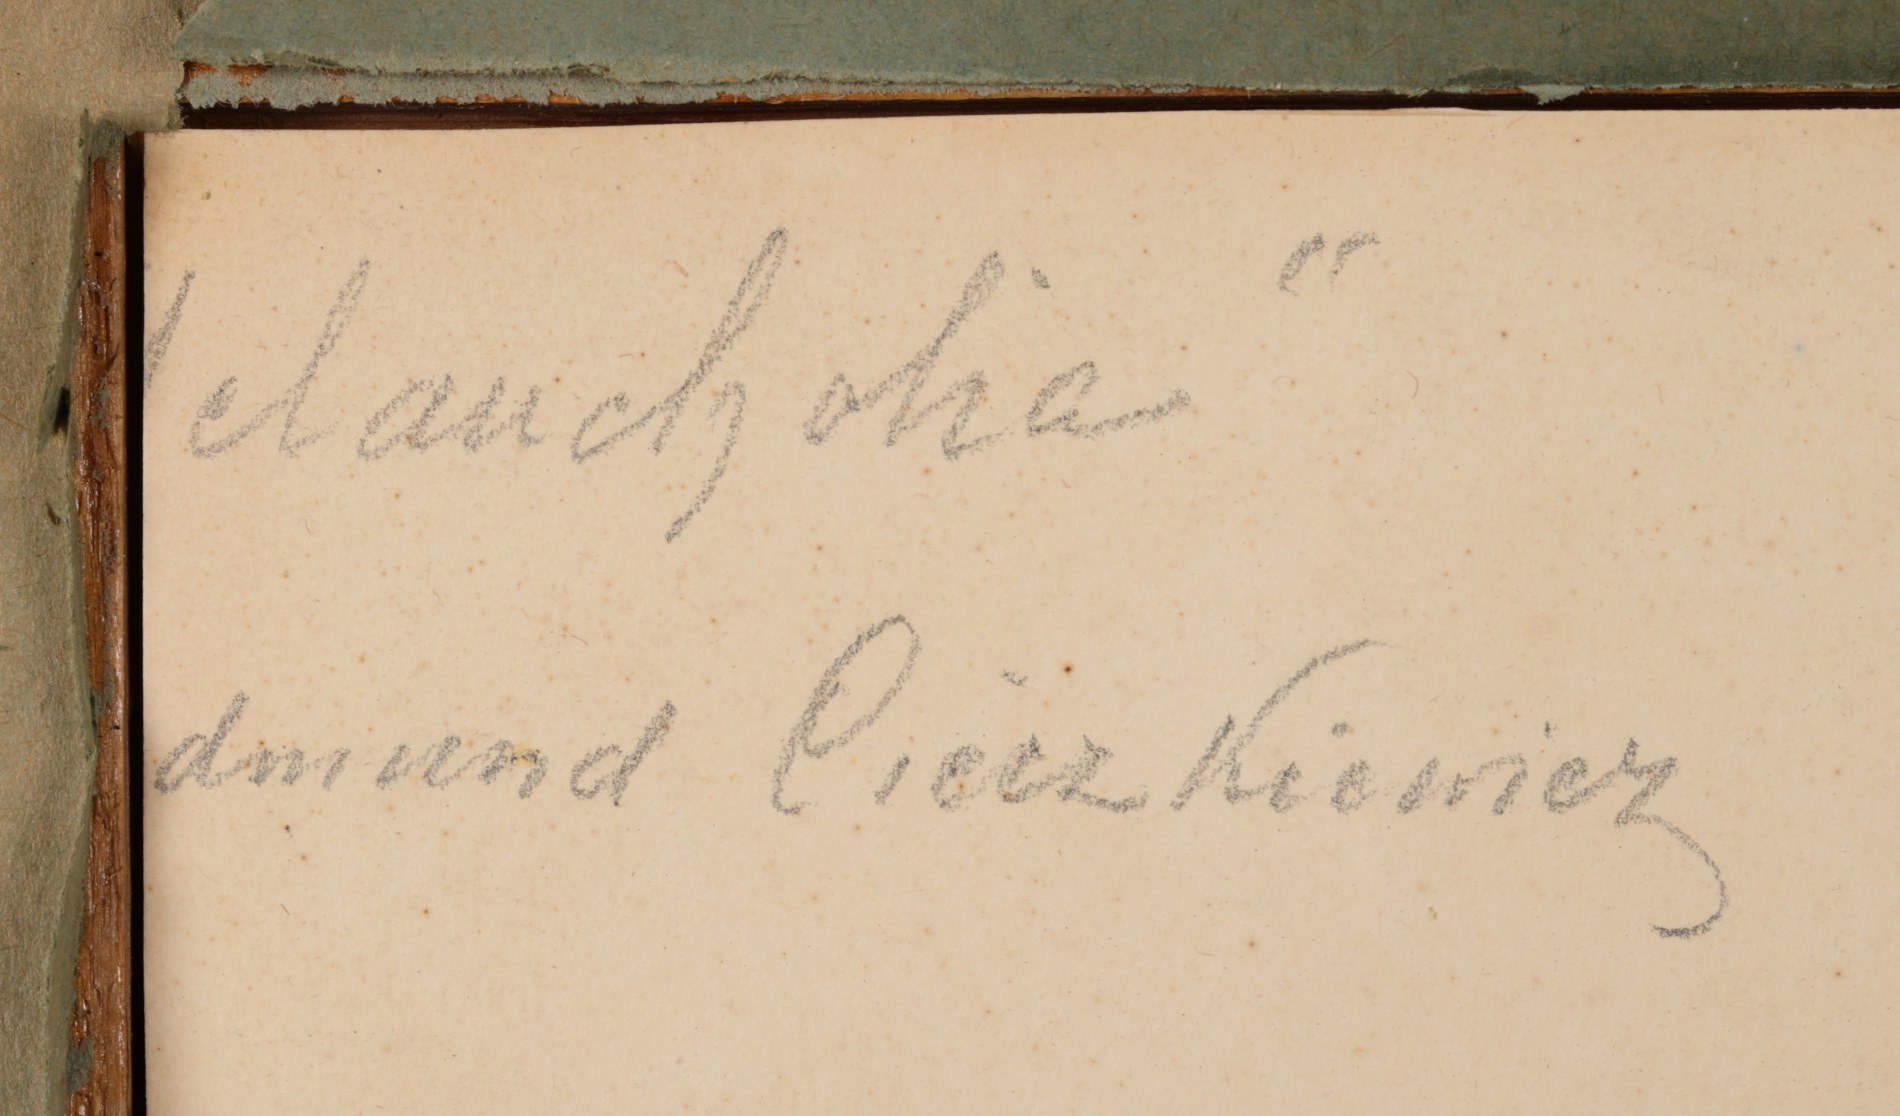 elancholia"
dmund Pieczkiewicz